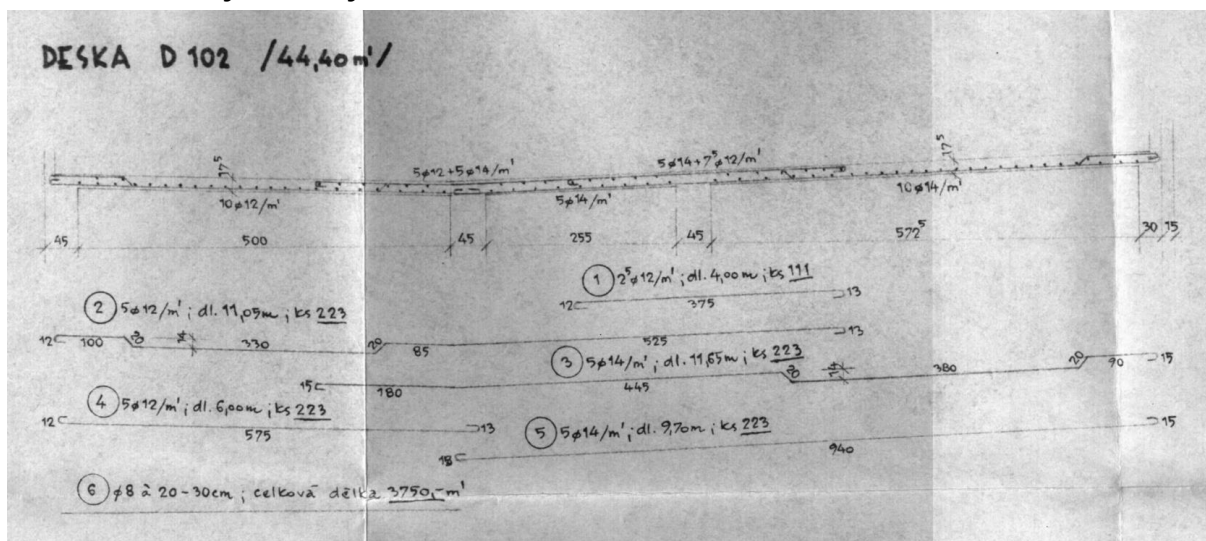 DESKA D 102 /44,40 m'/
17⁵
5ø12+5ø14/m'
5ø14+7⁵ø12/m'
17⁵
10ø12/m'
5ø14/m'
10ø14/m'
45 500 45 255 45 572⁵ 30 15
1 2⁵ø12/m' ; dl. 4,00m ; ks 111
12 375 13
2 5ø12/m' ; dl. 11,05m ; ks 223
12 100 20 14 330 20 85 525 13
3 5ø14/m' ; dl. 11,65m ; ks 223
15 180 445 20 14 380 20 90 15
4 5ø12/m' ; dl. 6,00m ; ks 223
12 575 13
5 5ø14/m' ; dl. 9,70m ; ks 223
18 940 15
6 ø8 à 20-30cm ; celková délka 3750,-m'